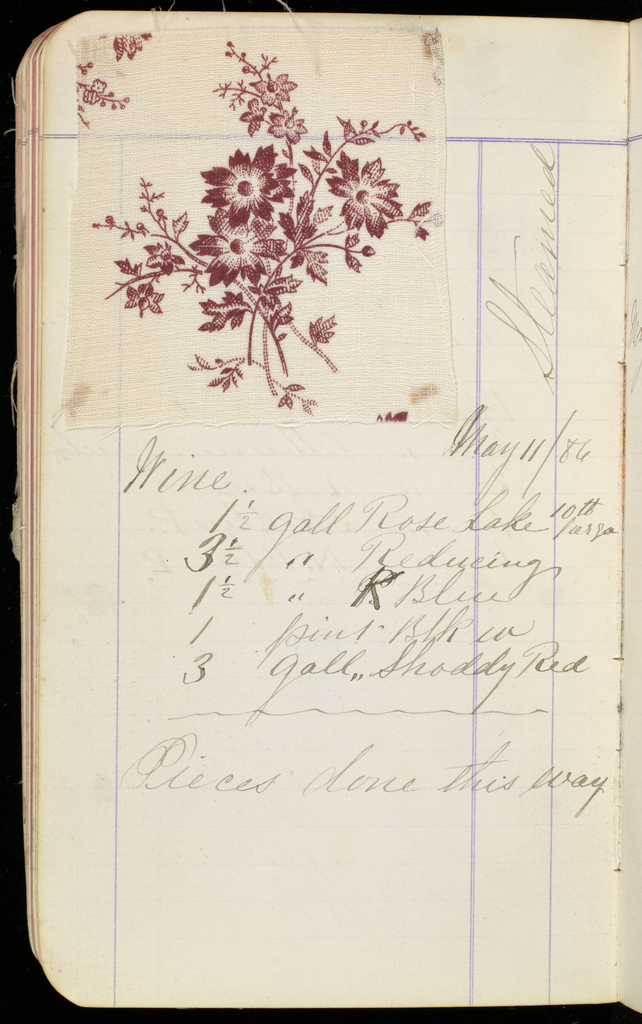 Steamed
May 11/86
Wine
1 1/2 gall Rose Lake 10th
3 1/2 " Reducing
1 1/2 " R Blue
1 pint Blk
3 gall,, Shoddy Red
Pieces done this way